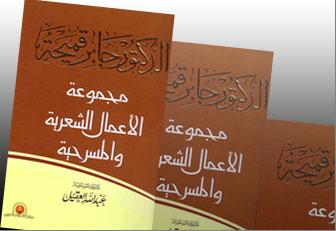 الدكتور جابر قميحة
مجموعة
الأعمال الشعرية
والمسرحية
عبد الله العقيل
الدكتور جابر قميحة
مجموعة
الأعمال الشعرية
والمسرحية